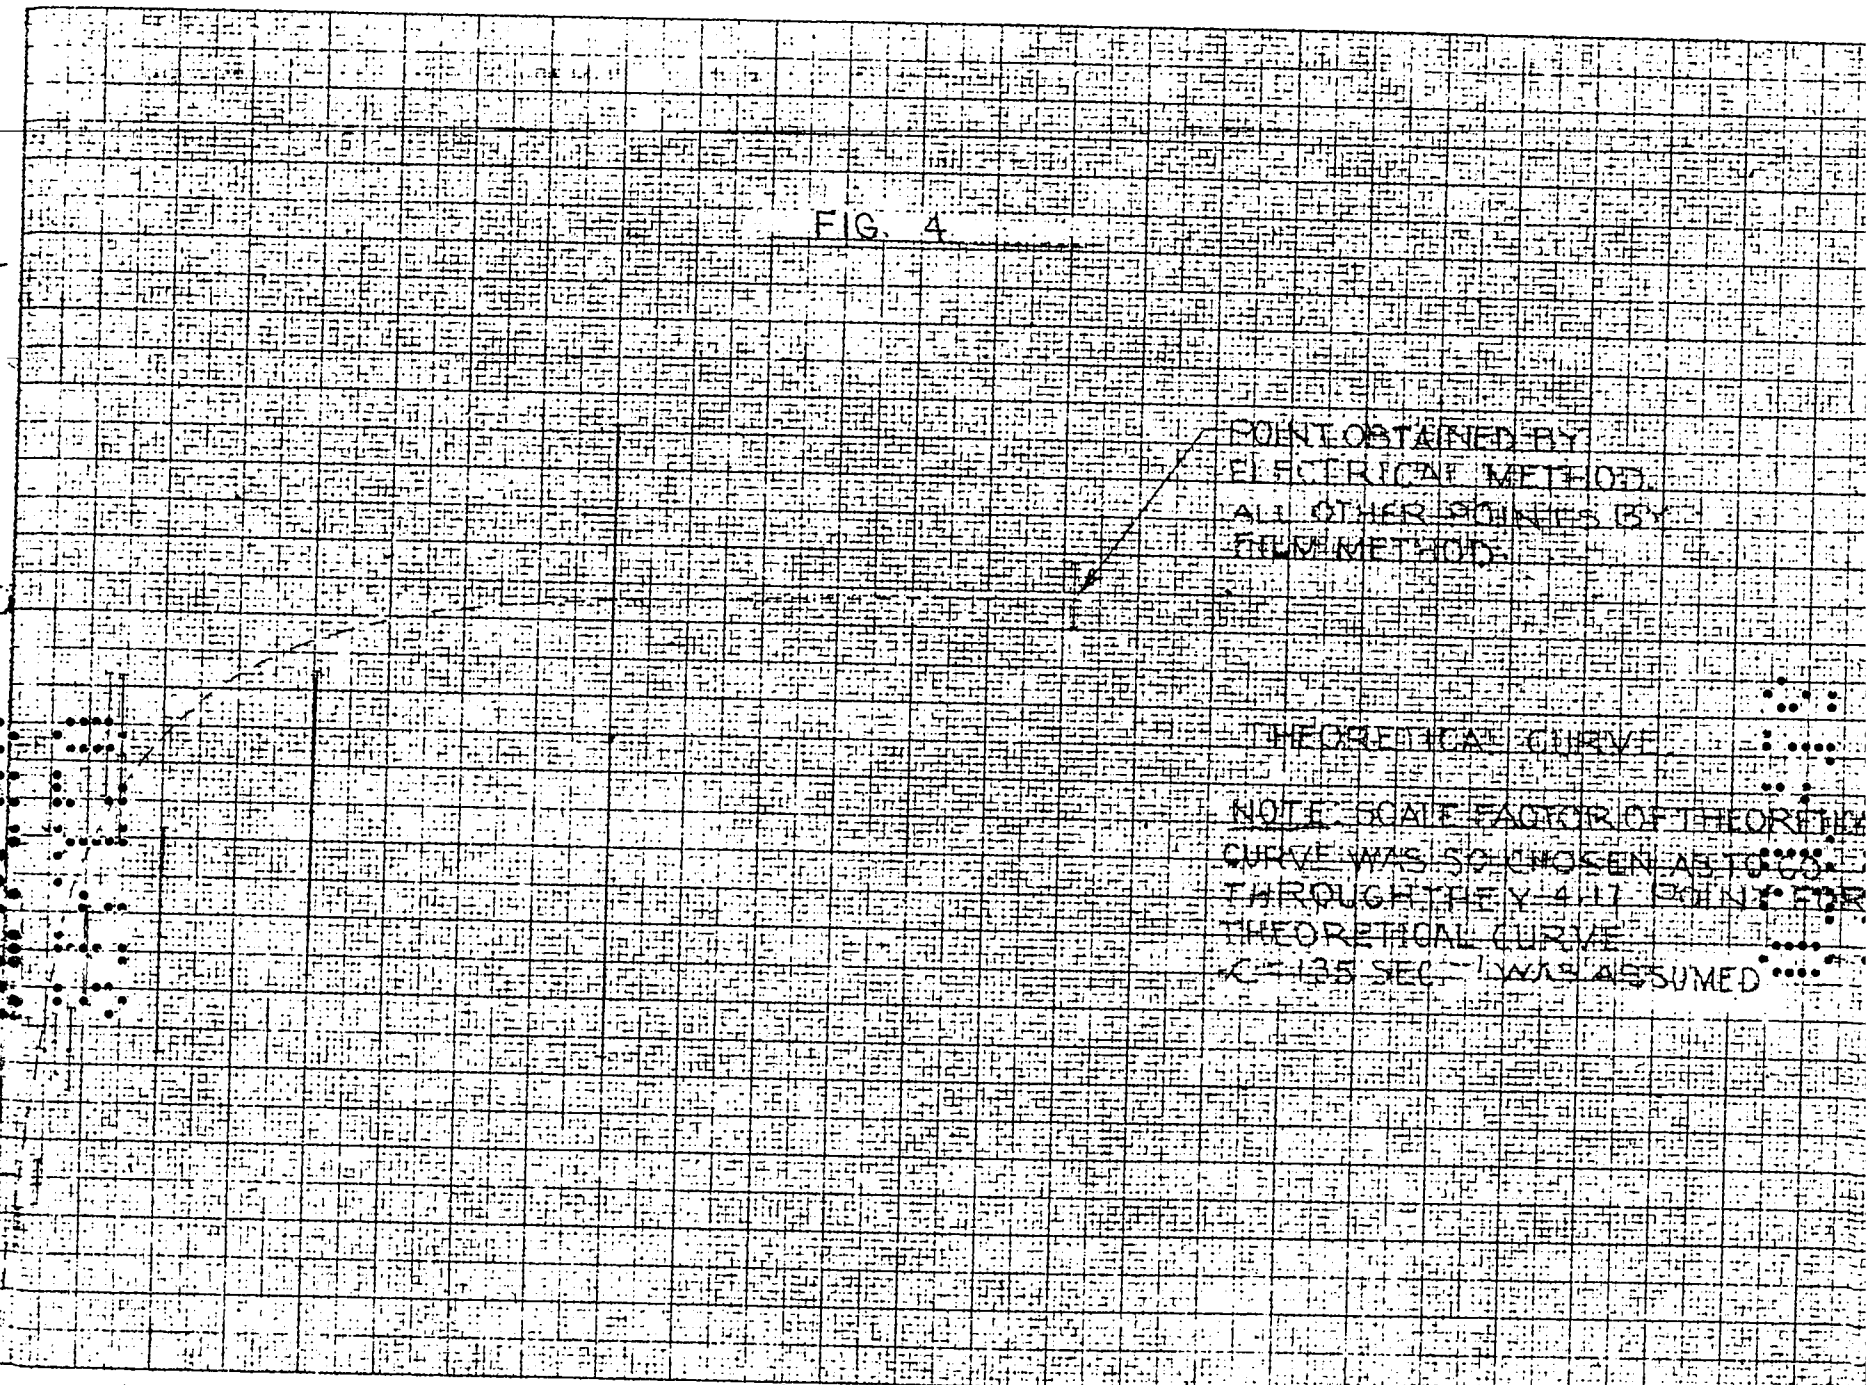 FIG. 4
POINT OBTAINED BY
ELECTRICAL METHOD.
ALL OTHER POINTS BY
FILM METHOD.
THEORETICAL CURVE
NOTE: SCALE FACTOR OF THEORETICA
CURVE WAS SO CHOSEN AS TO GO
THROUGH THE Y 4.17 POINT FOR
THEORETICAL CURVE
= 135 SEC-1 WAS ASSUMED